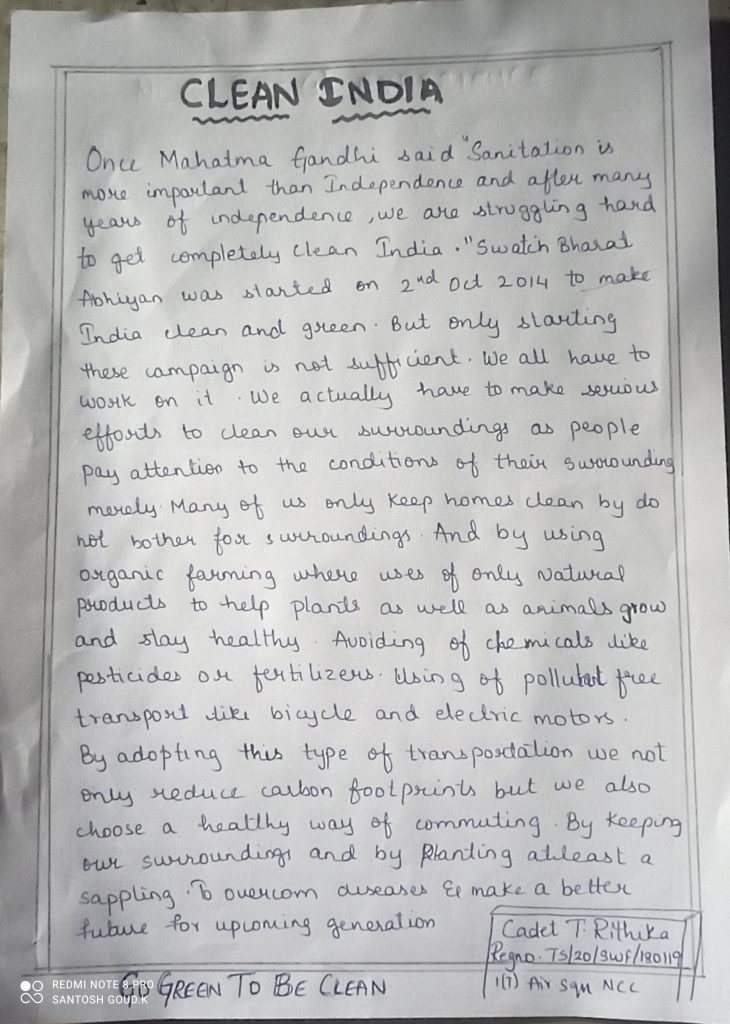 CLEAN INDIA
Once Mahatma Gandhi said "Sanitation is
more important than Independence and after many
years of independence, we are struggling hard
to get completely clean India." Swatch Bharat
Abhiyan was started on 2nd Oct 2014 to make
India clean and green. But only starting
these campaign is not sufficient. We all have to
work on it. We actually have to make serious
efforts to clean our surroundings as people
pay attention to the conditions of their surrounding
merely. Many of us only keep homes clean by do
not bother for surroundings. And by using
organic farming where uses of only Natural
products to help plants as well as animals grow
and stay healthy. Avoiding of chemicals like
pesticides or fertilizers. Using of pollutant free
transport like bicycle and electric motors.
By adopting this type of transportation we not
only reduce carbon footprints but we also
choose a healthy way of commuting. By Keeping
our surroundings and by Planting atleast a
sappling. To overcom diseases & make a better
future for upcoming generation
Cadet T. Rithika
Regno. TS/20/SWF/180119
1(T) Air Sqn NCC
GO GREEN TO BE CLEAN
REDMI NOTE 8 PRO
SANTOSH GOUD.K